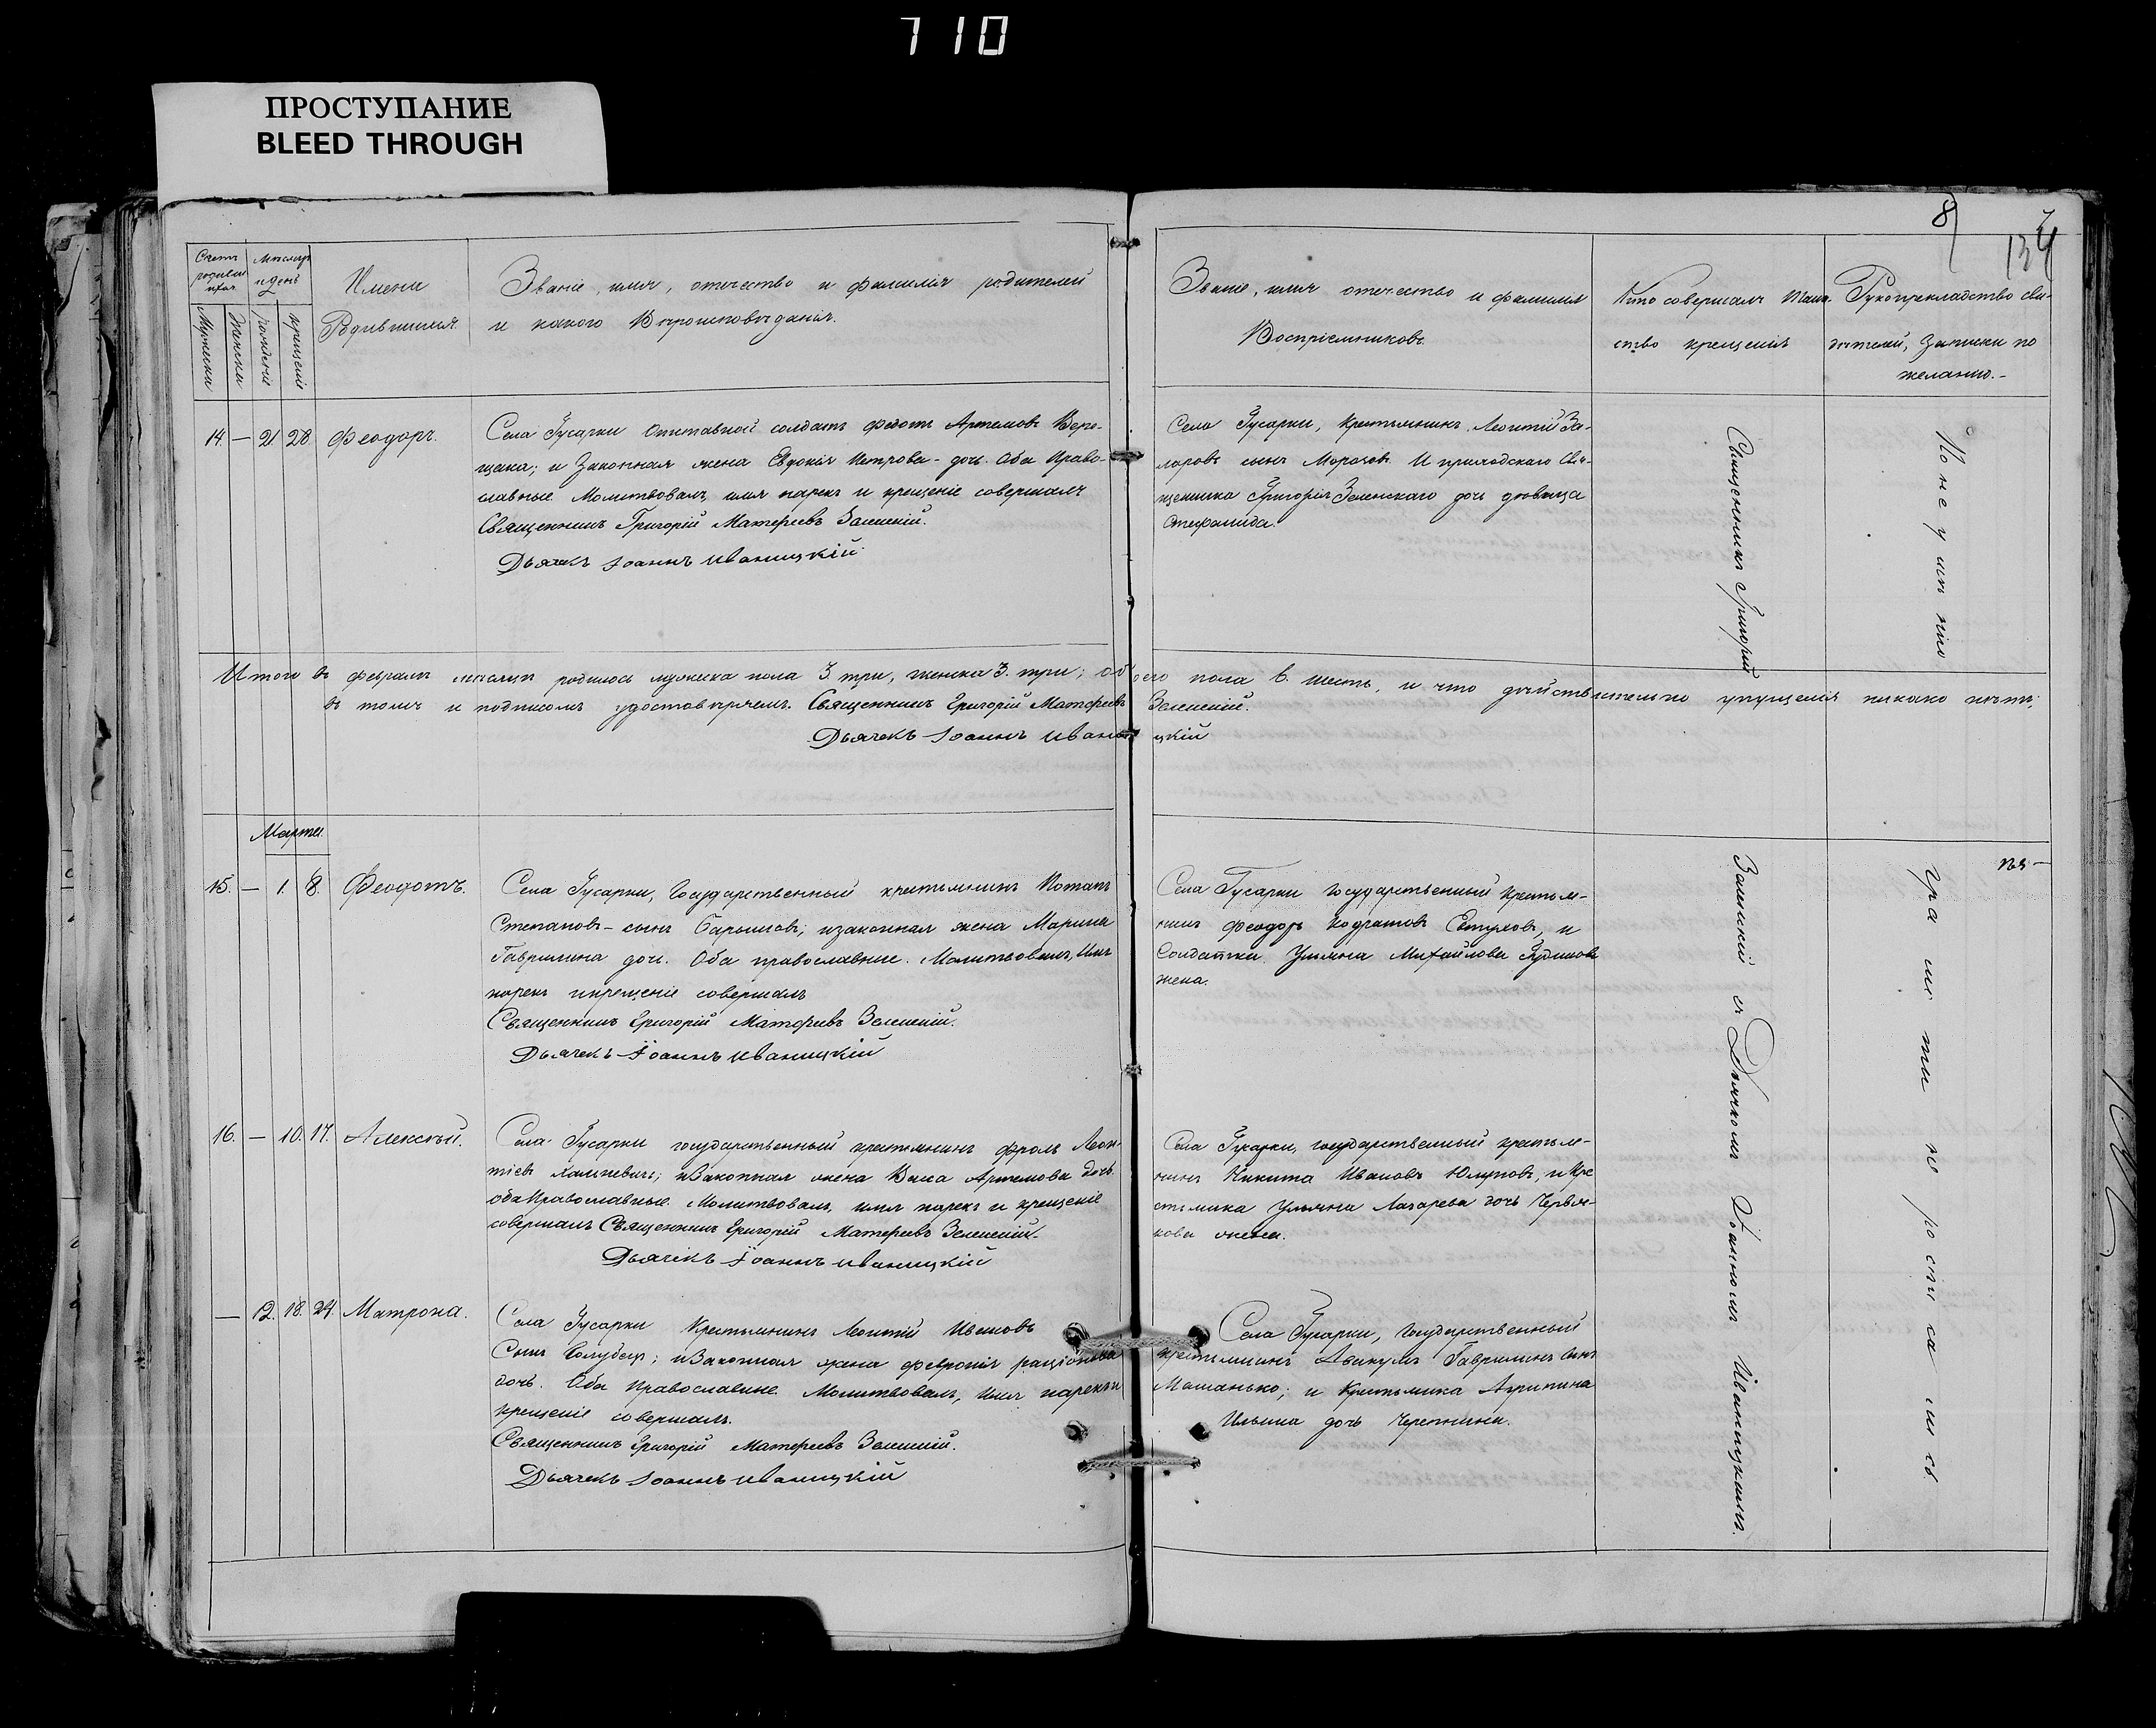 710
ПРОСТУПАНИЕ
BLEED THROUGH
8
134
Счетъ родившихся
Мѣсяцъ и день
Имена
Родившихся.
Званіе, имя, отечество и фамилія родителей
и какого Вѣроисповѣданія.
Мужеска
Женска
рожденія
крещенія
Званіе, имя отечество и фамилия
Воспріемниковъ.
Кто совершалъ Таин-
ство крещенія
Рукоприкладство сви-
дѣтелей, Записки по
желанію.-
14. — 21 28. Феодоръ.
Села Гусарки Отставной солдатъ Федотъ Артемовъ Вере-
щака; и Законная жена Евдокія Петрова- дочь. Оба Право-
славные. Молитвовалъ, имя нарекъ и крещеніе совершалъ
Священникъ Григорій Матѳеевъ Зеленскій.
Дьячекъ Іоаннъ Иваницкій.
Села Гусарки, Крестьянинъ Леонтій За-
харовъ сынъ Морозовъ. И приходскаго Свя-
щенника Григорія Зеленскаго дочь дѣвица
Стефанида.
Итого въ февралѣ мѣсяцѣ родилось мужеска пола 3. три, женска 3. три; обоего пола 6. шесть, и что дѣйствительно упущенія никако нѣтъ;
въ томъ и подписомъ удостовѣряемъ. Священникъ Григорій Матѳеевъ Зеленскій.
Дьячекъ Іоаннъ Иваницкій
Марта.
15. — 1. 8. Феодотъ.
Села Гусарки, Государственный крестьянинъ Потапъ
Степановъ- сынъ Барышовъ; изаконная жена Марина
Гаврилина дочь. Оба православные. Молитвовалъ, Имя
нарекъ икрещеніе совершалъ
Священникъ Григорій Матѳеевъ Зеленскій.
Дьячекъ Іоаннъ Иваницкій
Села Гусарки Государственный крестья-
нинъ Феодоръ Кодратовъ и
Солдатка Ульяна Михайлова
жена.
16. — 10. 17. Алексѣй.
Села Гусарки государственный крестьянинъ Фролъ Леон-
тіевъ изаконная жена Васса Артемова дочь.
оба Православные. Молитвовалъ, имя нарекъ и крещеніе
совершалъ Священникъ Григорій Матѳеевъ Зеленскій.
Дьячекъ Іоаннъ Иваницкій
Села Гусарки, государственный крестья-
нинъ Никита Ивановъ Юлуповъ, и Кре
стьянка Ульяна Лазарева дочь Червя-
кова жена.
— 12. 18. 24. Матрона.
Села Гусарки Крестьянинъ Леонтій Ивановъ
Сынъ Голубецъ; изаконная жена Февронія
дочь. Оба Православные. Молитвовалъ, Имя нарекъ и
крещеніе совершалъ.
Священникъ Григорій Матѳеевъ Зеленскій.
Дьячекъ Іоаннъ Иваницкій
Села Гусарки, Государственный
крестьянинъ Авакумъ Гаврилинъ сынъ
Машанько; и Крестьянка Агрипина
Ильина дочь Черепнина.
Священникъ Григорій
Зеленскій съ Дьячкомъ Іоанномъ Иваницкимъ.
По неумѣнію
грамоти не росписались.